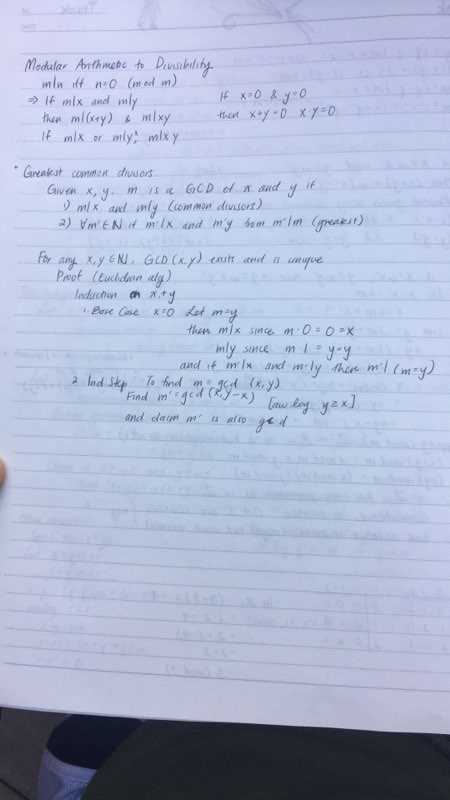 Modular Arithmetic to Divisibility
m|n iff n=0 (mod m)
⇒ If m|x and m|y If x=0 & y=0
then m|(x+y) & m|xy then x+y=0 x·y=0
If m|x or m|y, m|xy
• Greatest common divisors
Given x, y, m is a GCD of x and y if
1) m|x and m|y (common divisors)
2) ∀m'∈N if m'|x and m'|y then m'|m (greatest)
For any x,y∈N, GCD(x,y) exists and is unique
Proof (Euclidean alg)
Induction on x+y
1. Base Case x=0 Let m=y
then m|x since m·0=0=x
m|y since m·1=y=y
and if m'|x and m'|y then m'| (m=y)
2. Ind Step To find m=gcd (x,y)
Find m'=gcd(x,y-x) [aw log y≥x]
and claim m' is also gcd